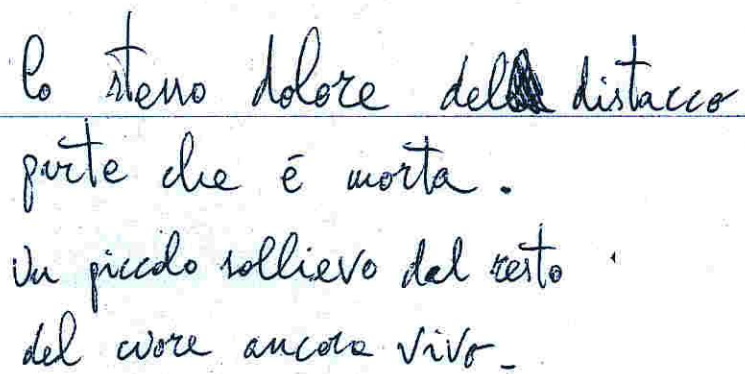 lo stesso dolore del distacco
parte che è morta.
Un piccolo sollievo dal resto
del cuore ancora vivo_